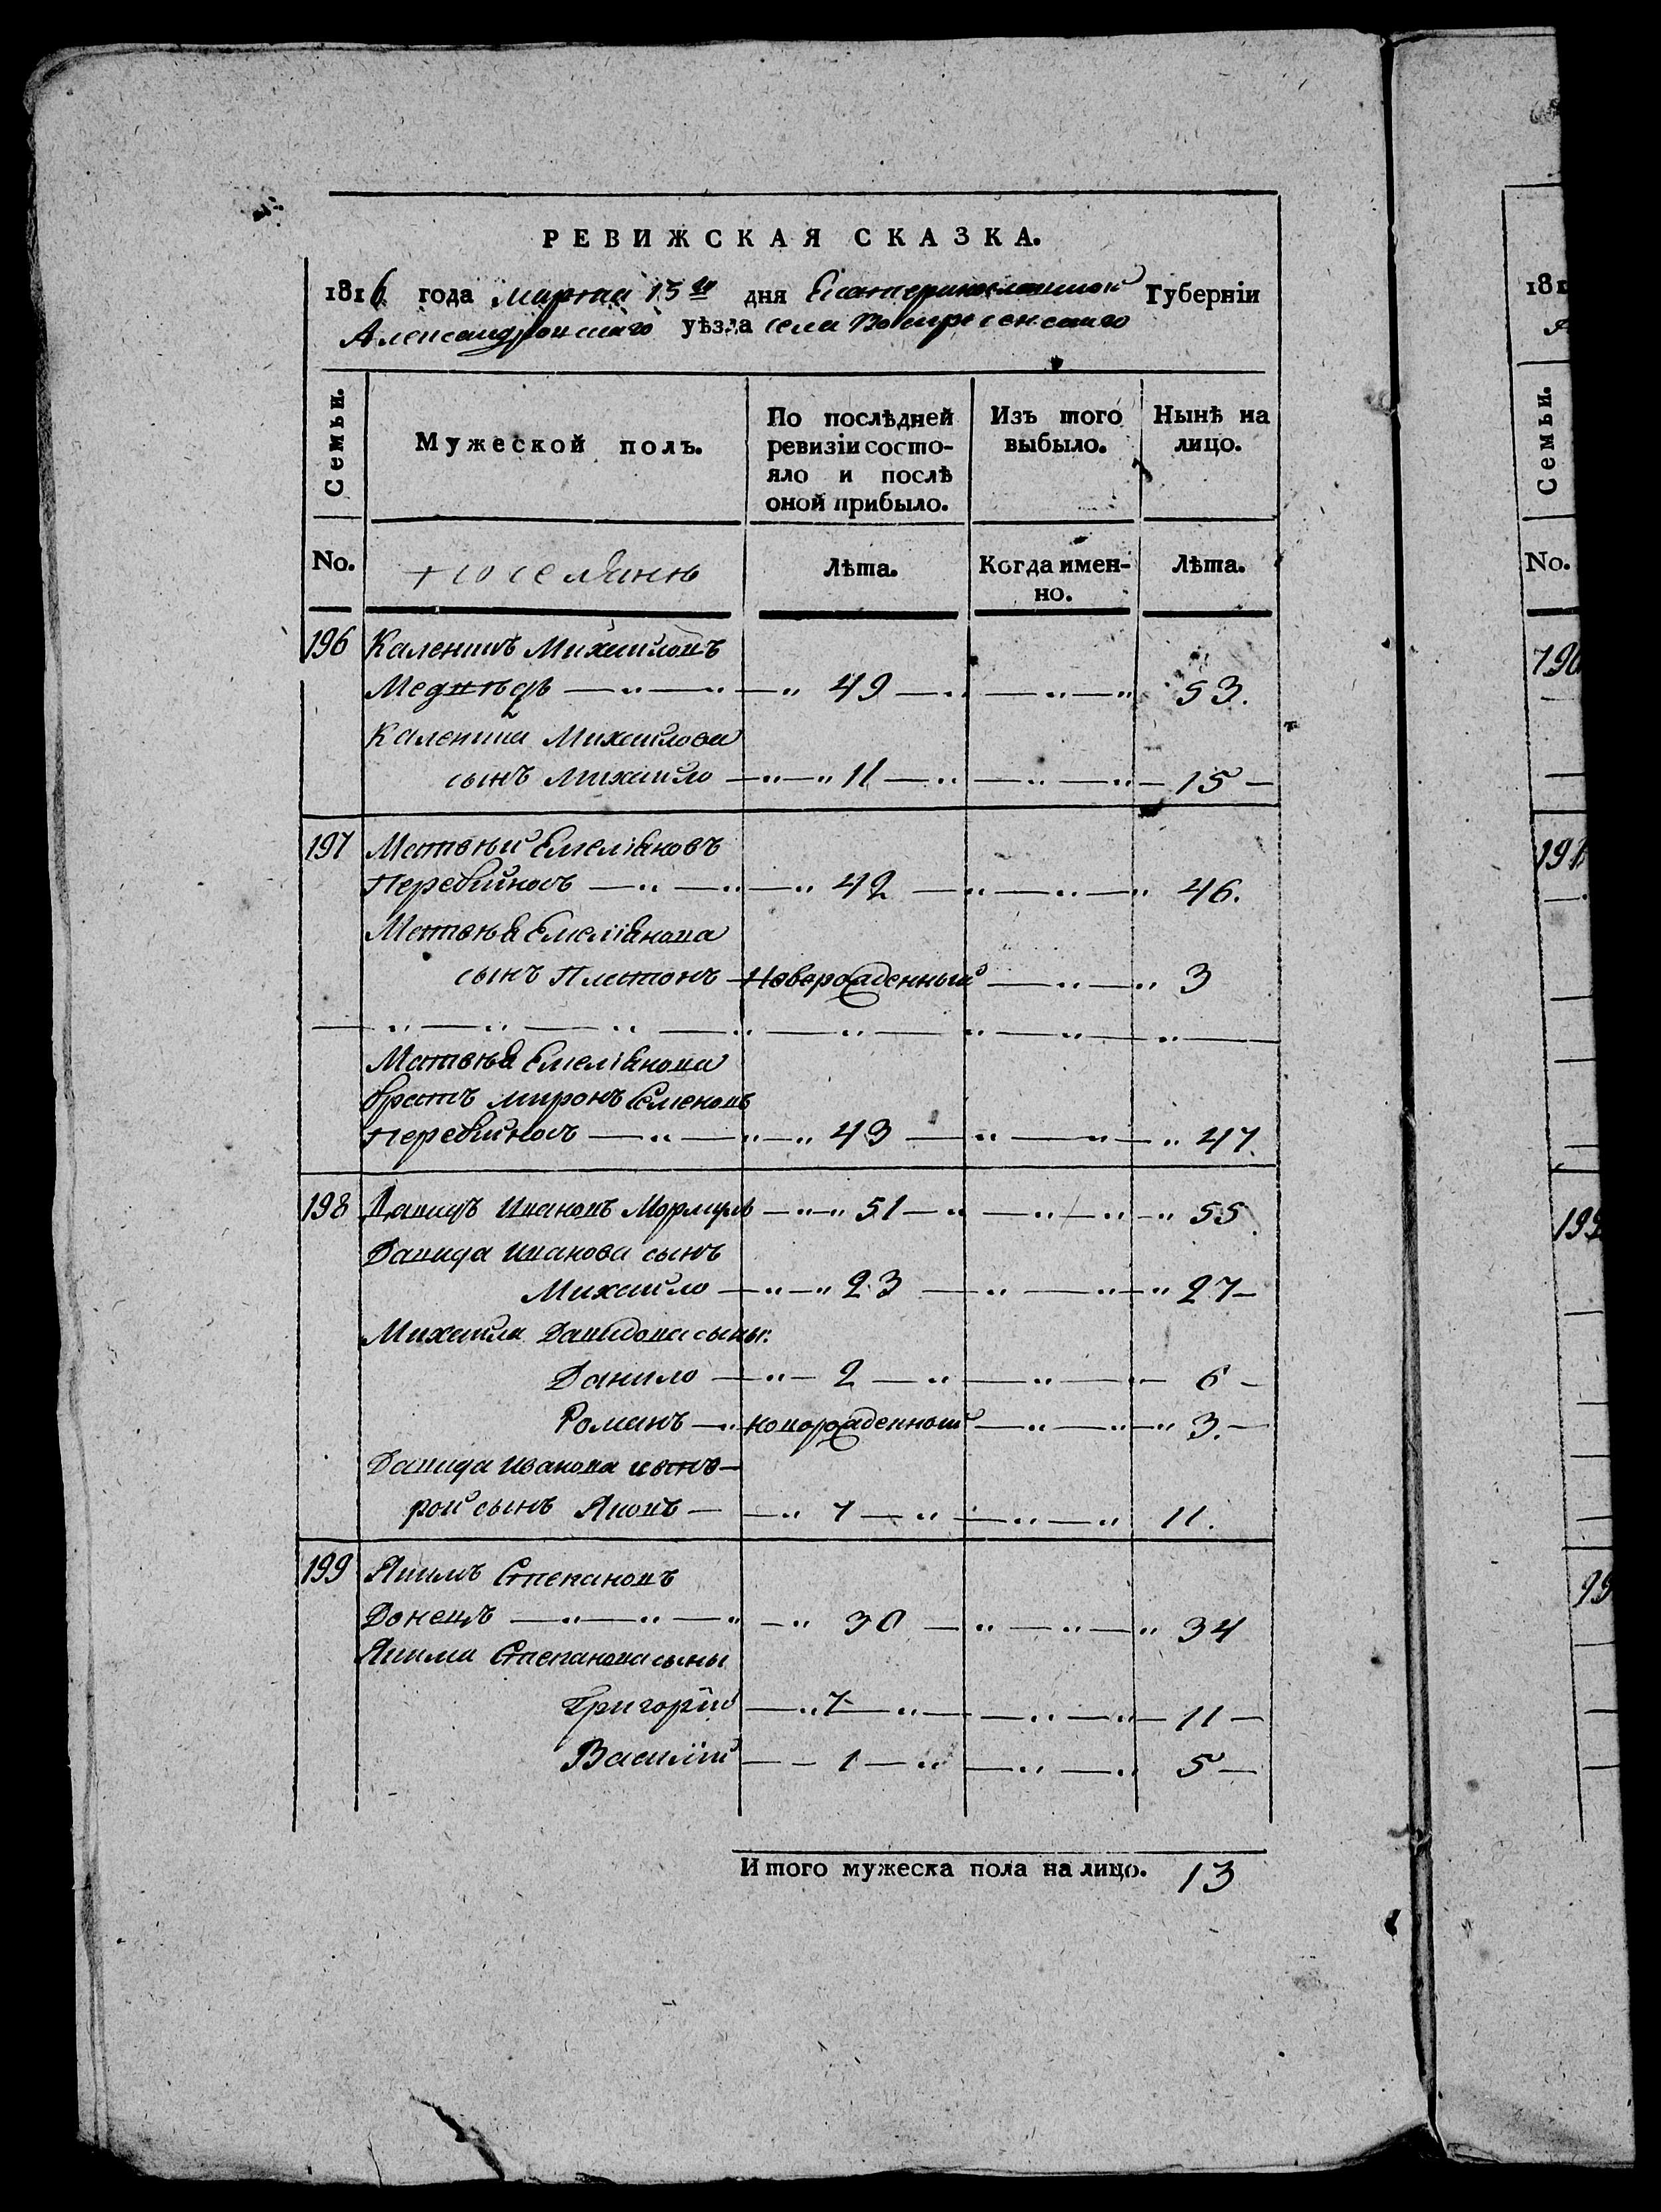 РЕВИЖСКАЯ СКАЗКА.
1816 года Марта 15го дня Екатеринославской Губерніи
Александровскаго уѣзда села Воскресенскаго
Семьи. Мужеской полъ. По послѣдней ревизіи состо-яло и послѣ оной прибыло. Изъ того выбыло. Нынѣ на лицо.
No. поселянѣ Лѣта. Когда имен-но. Лѣта.
196 Калениkъ Михайловъ
Медвѣдь 49 53.
Каленика Михайлова
сынъ Михайло 11 15
197 Матвѣй Емеліяновъ
Перебийносъ 42 46.
Матвѣя Емеліянова
сынъ Платонъ Новорожденный 3
Матвѣя Емеліянова
братъ Миронъ Семеновъ
Перебийносъ 43 47.
198 Давидъ Ивановъ Мормуль 51 55
Давида Иванова сынъ
Михайло 23 27
Михайла Давидова сыны:
Данило 2 6
Романъ новорожденный 3.
Давида Иванова вто-
рой сынъ Яковъ 7 11.
199 Якимъ Степановъ
Донецъ 30 34
Якима Степанова сыны
Григорій 7 11
Василій 1 5
Итого мужеска пола на лицо. 13
181
Семьи.
No.